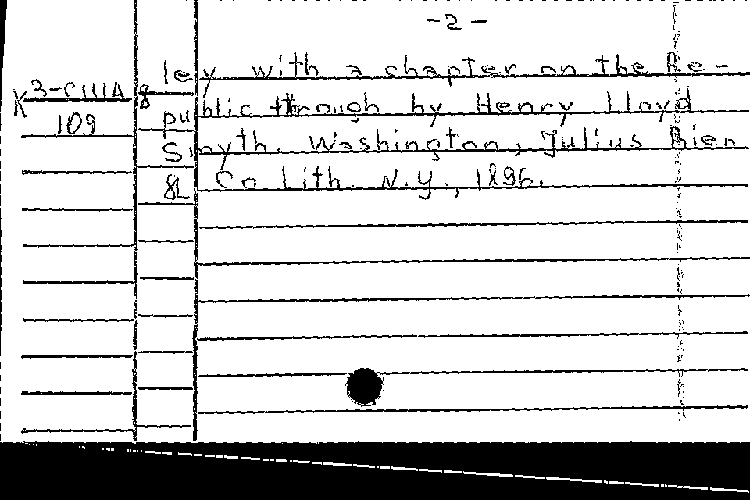 -2-
ley with a chapter on the Re-
K 3-CIIIA 8
109
public through by Henry Lloyd
Smyth. Washington, Julius Bien
& Co Lith. N.Y., 1896.